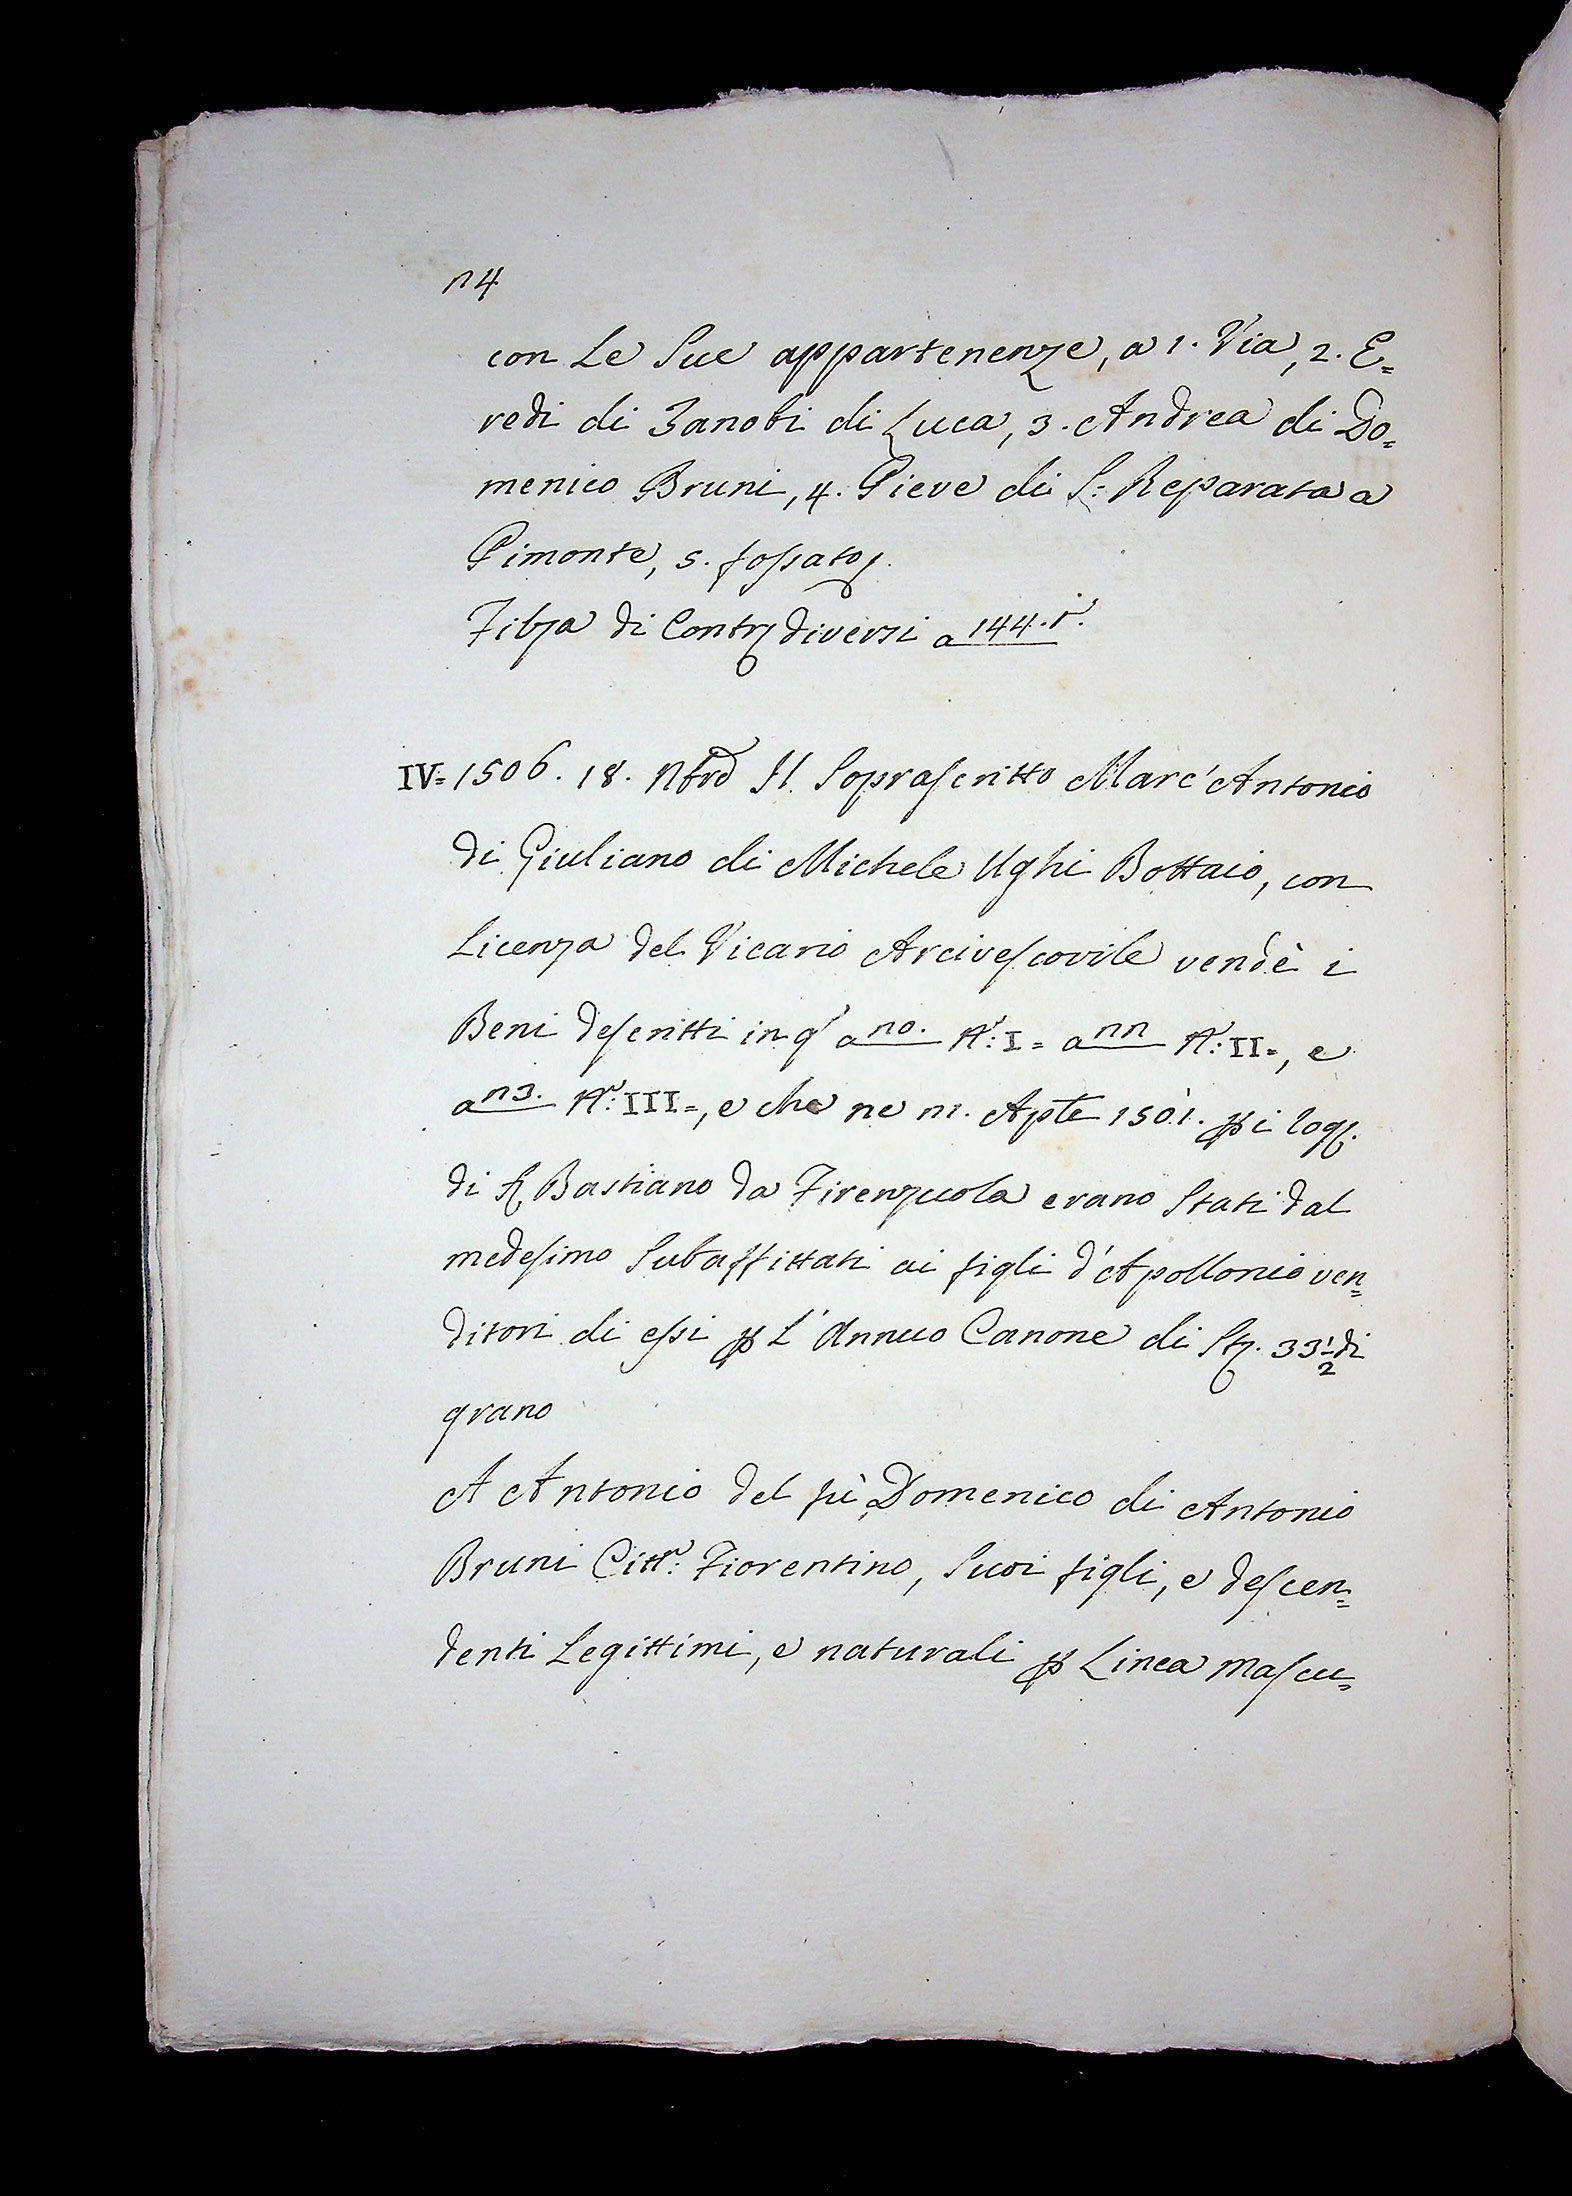 114
con Le Sue appartenenze, a 1. Via, 2. E=
redi di Zanobi di Luca, 3. Andrea di Do=
menico Bruni, 4. Pieve di S: Reparata a
Pimonte, 5. fossato
Filza di Contr diversi a 144. r.
IV= 1506. 18. Nbre Il Soprascritto Marc'Antonio
di Giuliano di Michele Ughi Bottaio, con
Licenza del Vicario Arcivescovile vendè i
Beni descritti in q° a 110. N°: I= a 111 N°: II=, e
a 113. N°: III=, e che ne 11. Aple 1501. p i rog.
di Bastiano da Firenzuola erano Stati dal
medesimo Subaffittati ai figli d'Apollonio ven=
ditori di essi p L'Annuo Canone di St. 33 1/2 di
grano
A Antonio del fù Domenico di Antonio
Bruni Citt°: Fiorentino, Suoi figli, e descen=
denti Legittimi, e naturali p Linea mascu=